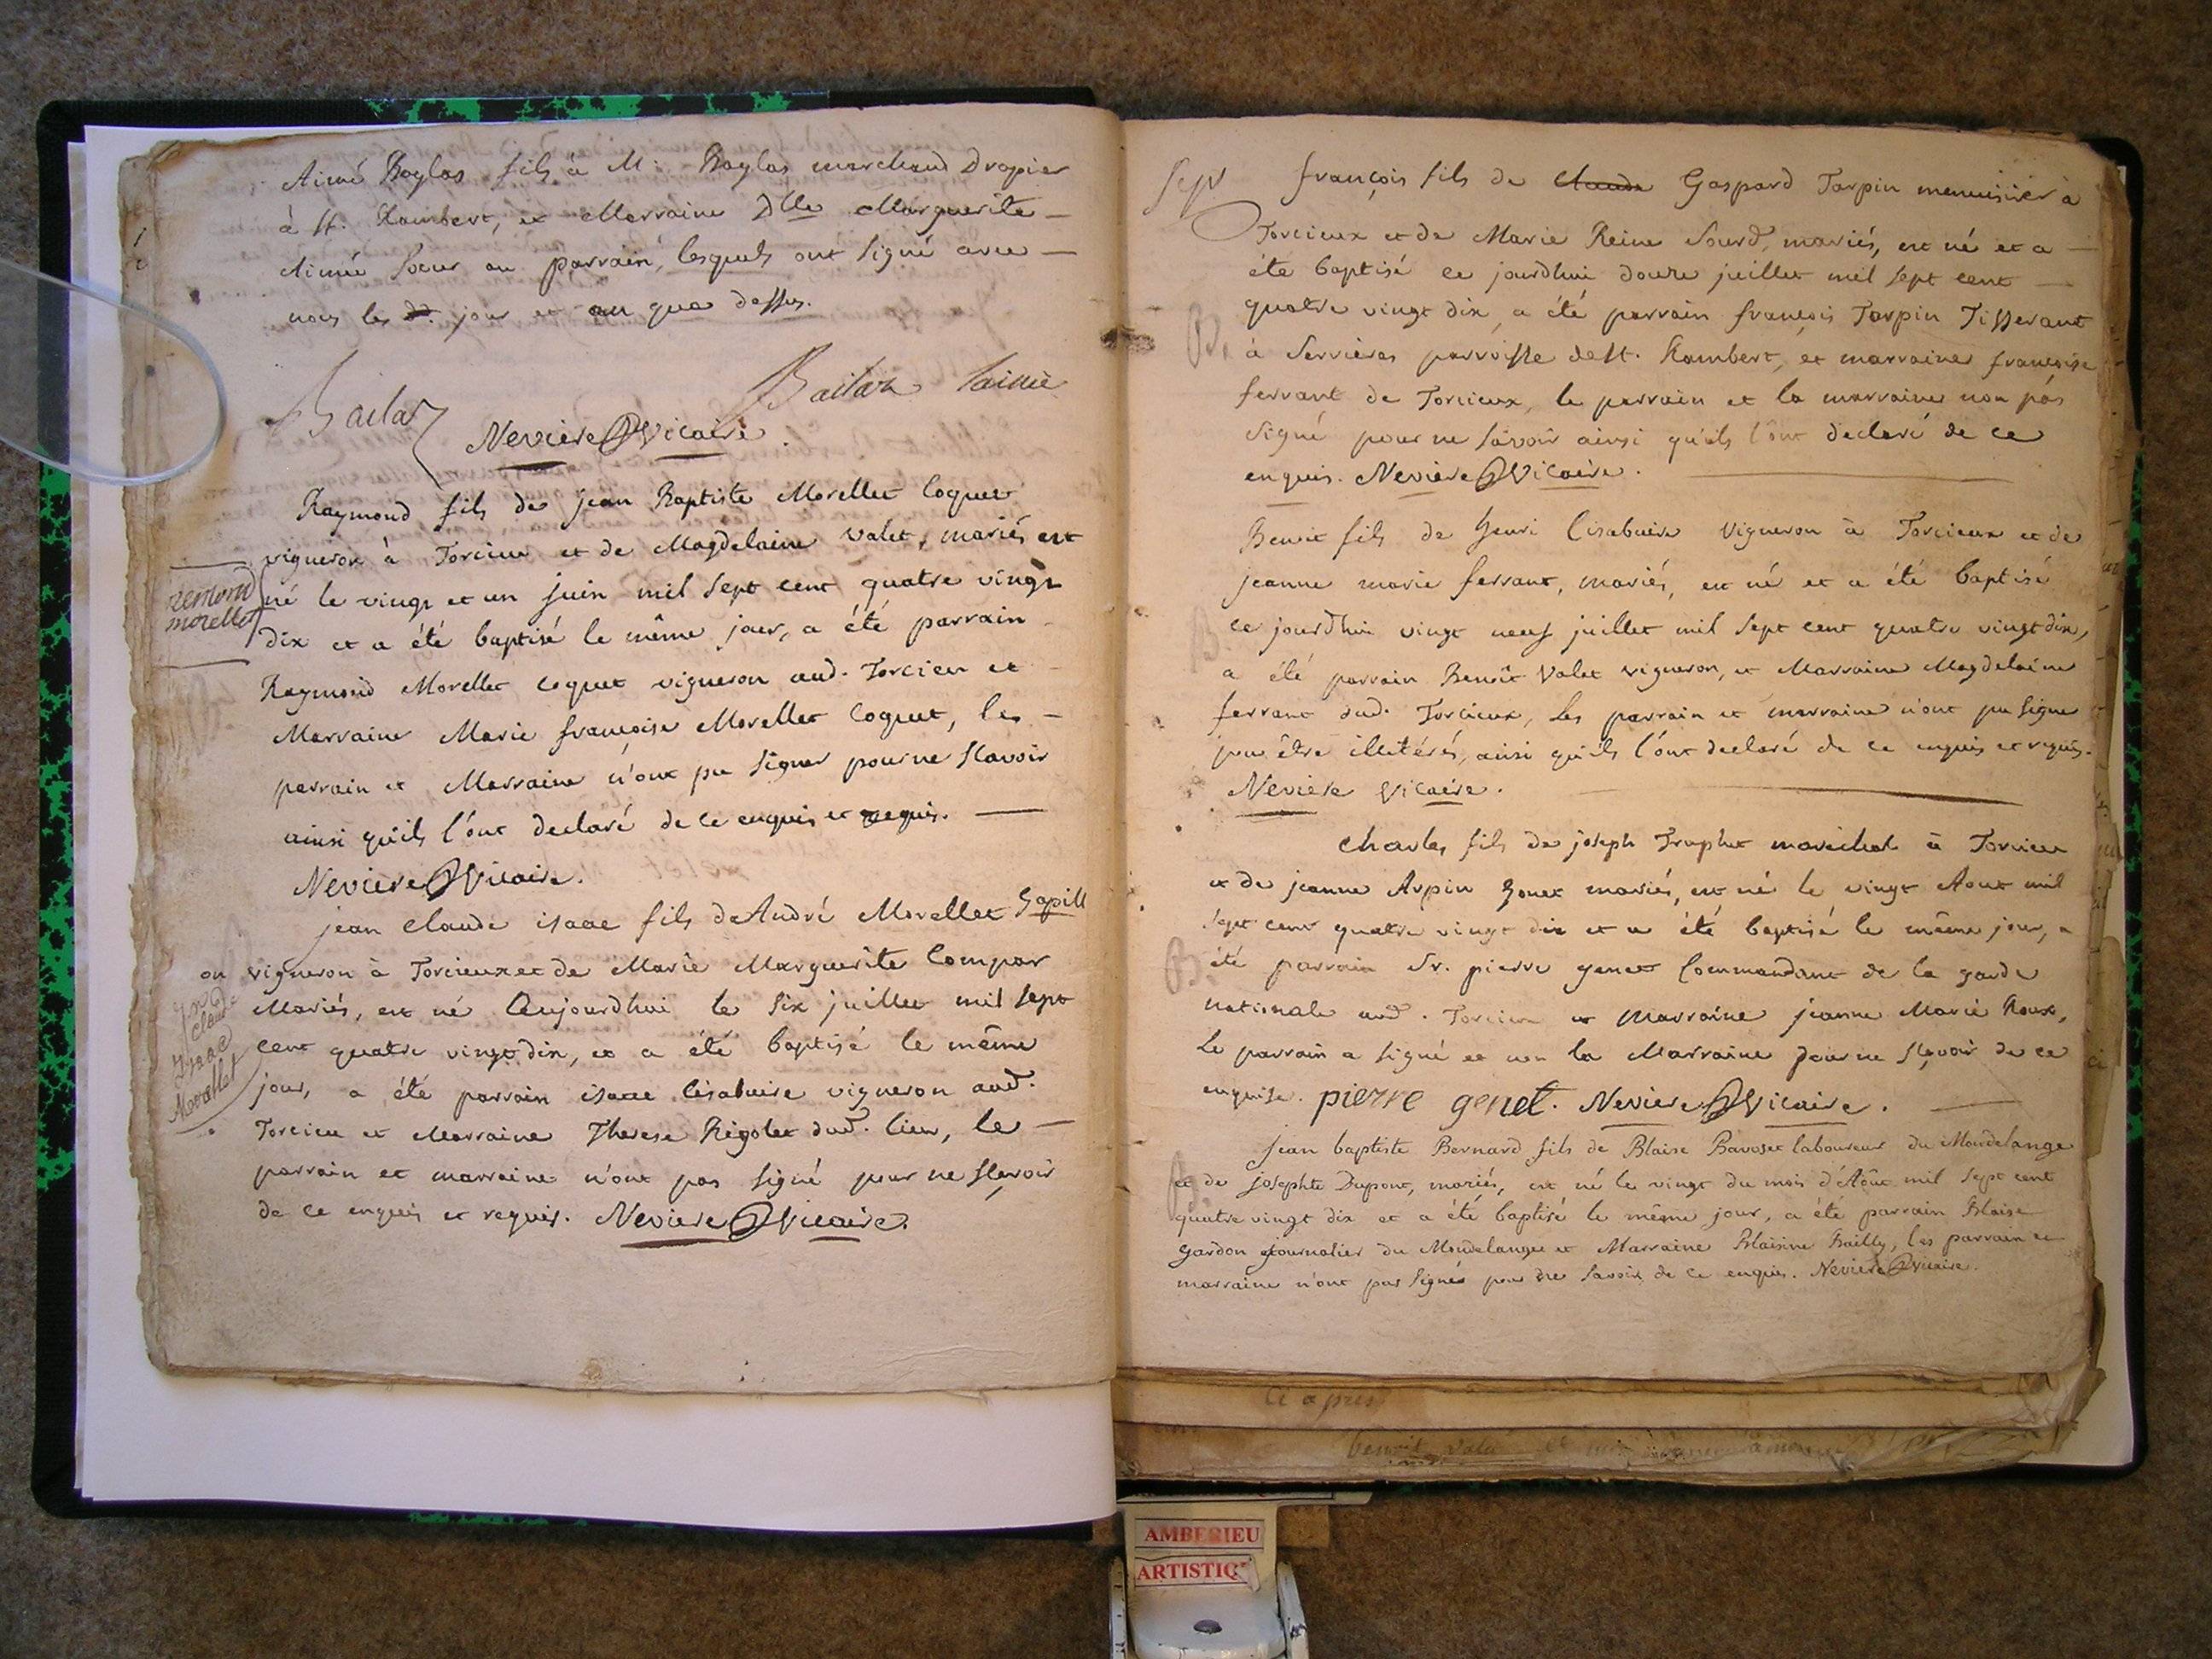 Aimé Baylas fils à M: Baylas marchand Drapier
à St. Rambert, et Marraine Dlle Marguerite
Aimée Soeur au parrain, lesquels ont signé avec
nous les jour et an que dessus.
Bailar Bailar lainée
Neviere Vicaire.
Raymond fils de jean Baptiste Morellet Coquet
vigneron à Torcieu et de Magdelaine Valet, mariés est
né le vingt et un juin mil sept cent quatre vingt
dix et a été baptisé le même jour, a été parrain
Raymond Morellet coquet vigneron aud. Torcieu et
Marraine Marie françoise Morellet Coquet, les
parrain et Marraine n'ont pu signer pour ne sçavoir
ainsi qu'ils l'ont declaré de ce enquis et requis.
Neviere Vicaire.
remond
morellet
jean Claude isaac fils de André Morellet Gapill
on vigneron à Torcieux et de Marie Marguerite Compar
Mariés, est né Aujourdhui le six juillet mil sept
cent quatre vingt dix, et a été baptisé le même
jour, a été parrain isaac Cisabuire vigneron aud.
Torcieu et Marraine Therese Rigolet dud. lieu, le
parrain et marraine n'ont pas signé pour ne sçavoir
de ce enquis et requis. Neviere Vicaire.
Claud
Isaac
Morellet
françois fils de Claude Gaspard Tarpin menuisier à
Torcieux et de Marie Reine Sourd, mariés, est né et a
été baptisé ce jourdhui douze juillet mil sept cent
quatre vingt dix, a été parrain françois Tarpin Tisserant
à Servieres parroisse de St. Rambert, et marraine françoise
ferrant de Torcieux, le parrain et la marraine non pas
signé pour ne savoir ainsi qu'ils l'ont declaré de ce
enquis. Neviere Vicaire.
B.
Benoit fils de henri Cisabuire Vigneron à Torcieux et de
jeanne marie ferrant, mariés, est né et a été baptisé
ce jourdhui vingt neuf juillet mil sept cent quatre vingt dix,
a été parrain Benoît Valet vigneron, et Marraine Magdelaine
ferrant dud. Torcieux, les parrain et marraine n'ont pu signe
pour être illitérés, ainsi qu'ils l'ont declaré de ce enquis et requis.
Neviere Vicaire.
B.
Charles fils de joseph Truphet marechal à Torcieu
et de jeanne Arpin Gonet mariés, est né le vingt Aout mil
sept cent quatre vingt dix et a été baptisé le même jour, a
été parrain Sr. pierre genet Commandant de la garde
nationale aud. Torcieu et Marraine jeanne Marie Roux,
Le parrain a signé et non la Marraine pour ne sçavoir de ce
enquise. pierre genet. Neviere Vicaire.
B.
jean baptiste Bernard fils de Blaise Bavoset laboureur du Mondelange
et de josephte Dupont, mariés, est né le vingt du mois d'Aôut mil sept cent
quatre vingt dix et a été baptisé le même jour, a été parrain Blaise
gardon journalier du Mondelange et Marraine Blaisine Bailly, les parrain et
marraine n'ont pas signés pour ne savoir de ce enquis. Neviere Vicaire.
B.
Ci apres
benoit vala
AMBERIEU
ARTISTIQ